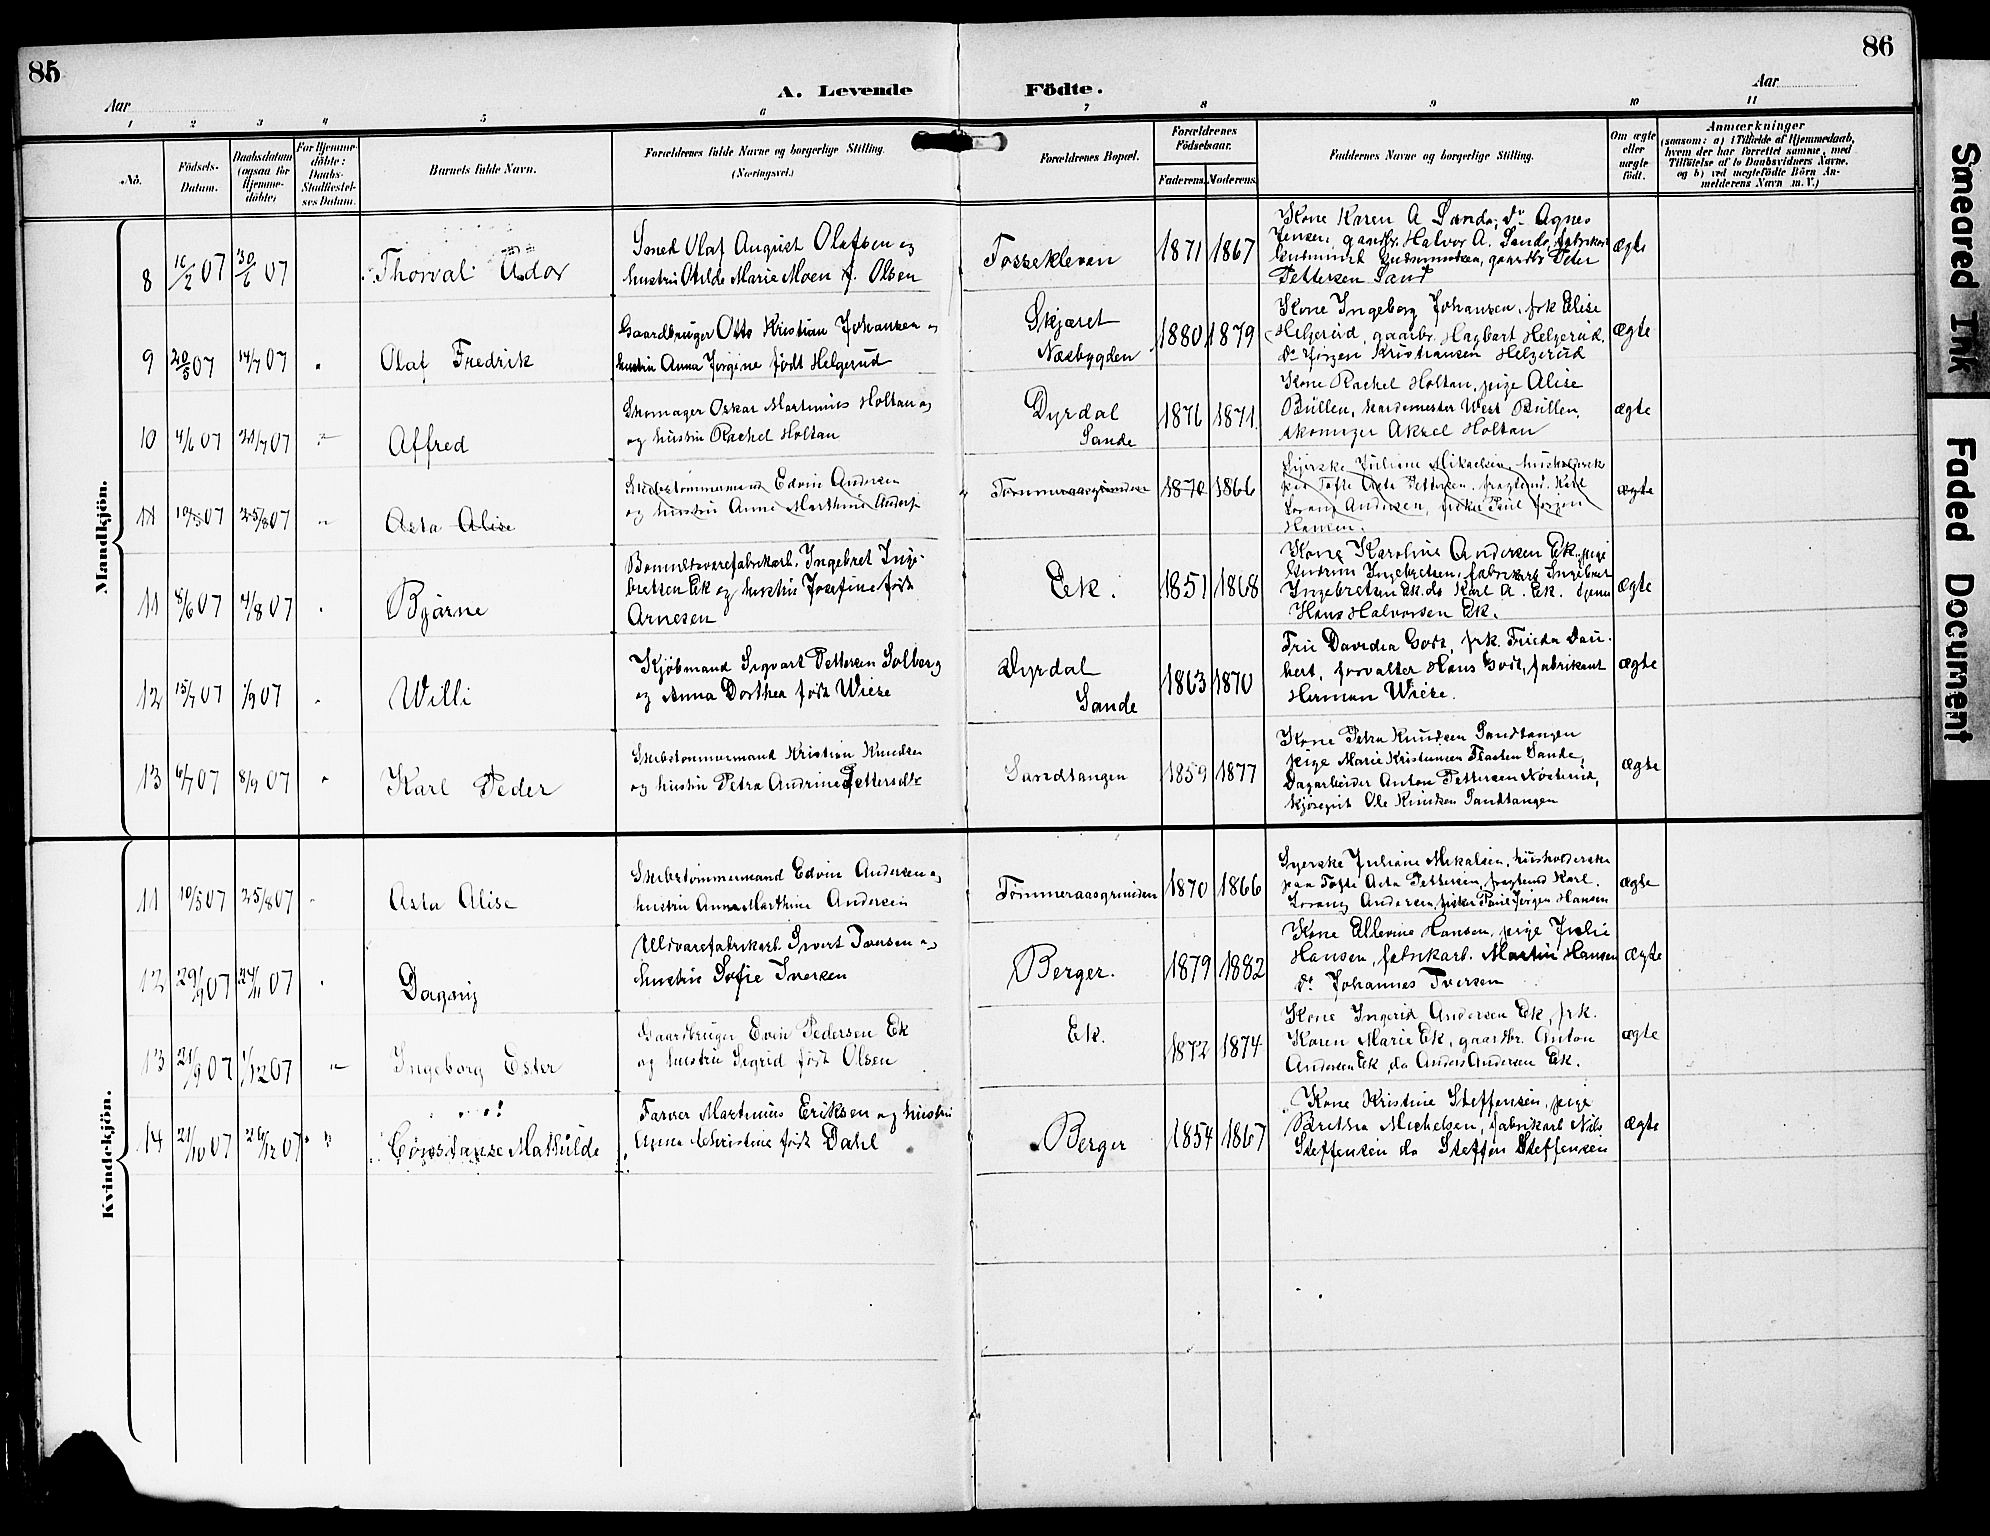 85
86
Aar
A. Levende
Födte.
Aar
1 2 3 4 5 6 7 8 9 10 11
No.
Födsels-Datum.
Daabsdatum (ogsaa for Hjemme-döbte)
For Hjemme-döbte: Daabs-Stadfæstel-ses Datum.
Barnets fulde Navn.
Forældrenes fulde Navne og borgerlige Stilling. (Næringsvei.)
Forældrenes Bopæl.
Forældrenes Födselsaar.
Faderens. Moderens.
Faddernes Navne og borgerlige Stilling.
Om ægte eller uægte födt.
Anmærkninger
(saasom: a) i Tilfælde af Hjemmedaab, hvem der har forrettet samme, med Tilföielse af to Daabsvidners Navne. og b) ved uægtefödte Börn An-melderens Navn m. V.)
Mandkjön.
8 07 30/6 07 Thorval
Smed Olaf August Olafsen og
hustru Marie Moen f. Olsen
Fossekleven 1871 1867
Kone Karen A Sando, do Agnes
Jensen, gaardbr. Halvor A. Sando, fabrikarb
gaardbr Peter
Pettersen Sand
ægte
9 20/5 07 14/7 07 " Olaf Fredrik
Gaardbruger Otto Kristian Johansen og
hustru Anna Jørgine født Helgerud
Skjæret
Næsbygden 1880 1879
Kone Ingeborg Johansen, frk Elise
Helgerud, gaarbr. Hagbart Helgerud,
do Jørgen Kristiansen Helgerud
ægte
10 4/6 07 21/7 07 " Alfred
Skomager Oskar Martinius Holtan og
og hustru Rachel Holtan
Dyrdal
Sande 1876 1871
Kone Rachel Holtan, pige Alise
Bullen, West Bullen,
skomager Aksel Holtan
ægte
11 10/5 07 25/8 07 " Asta Alise
Skibstømmermand Edvin Andersen
og hustru Anne Marthine Anders
Tømmeraasgrinden 1870 1866
Syerske Juliane Mikaelsen, husholderske
paa Tofte Asta Pettersen, fragtemd. Karl
Lorang Andersen, fisker Paul Jørgen
Hansen.
ægte
11 8/6 07 4/8 07 " Bjarne
Bomuldsvarefabrikarb. Ingebret Inge-
bretsen Ek og hustru Josefine født
Arnesen
Ek. 1851 1868
Kone Karoline Andersen Ek, pige
Gudrun Ingebretsen, fabrikarb Ingebret
Ingebretsen Ek. do Karl A. Ek.
Hans Halvorsen Ek.
ægte
12 15/7 07 1/9 07 " Willi
Kjøbmand Sigvart Pettersen Solberg
og Anna Dorthea født Wiese
Dyrdal
Sande 1863 1870
Fru Davidia Godt, frk. Frieda Dau-
bert, forvalter Hans Godt, fabrikant
Herman Wiese.
ægte
13 6/7 07 8/9 07 " Karl Peder
Skibstømmermand Kristian Knudsen
og hustru Petra Andrine Pettersdtr
Sandtangen 1859 1877
Kone Petra Knudsen Sandtangen
pige Marie Kristiansen Sande,
Dagarbeider Anton Pettersen
Ole Knudsen Sandtangen
ægte
Kvindekjön.
11 10/5 07 25/8 07 " Asta Alise
Skibstømmermand Edvin Andersen og
hustru Anne Marthine Andersen
Tømmeraasgrinden 1870 1866
Syerske Juliane Mikalsen, husholderske
paa Tofte Asta Pettersen, fragtemd Karl
Lorang Andersen, fisker Paul Jørgen Hansen
ægte
12 29/9 07 24/11 07 " Dagny
Uldvarefabrikarb. Sivert Iversen og
hustru Sofie Iversen
Berger. 1879 1882
Kone Ellevine Hansen, pige Julie
Hansen, fabrikarb. Martin Hansen
do Johannes Iversen
ægte
13 21/9 07 1/12 07 " Ingeborg Ester
Gaardbruger Even Pedersen Ek
og hustru Ingrid født Olsen
Ek. 1872 1874
Kone Ingerid Andersen Ek, frk.
Karen Marie Ek, gaardbr. Anton
Andersen Ek, do Anders Andersen Ek.
ægte
14 21/10 07 26/12 07 " Constanse Mathilde
Farver Martinius Eriksen og hustru
Anna Christine født Dahl
Berger 1854 1867
Kone Kristine Steffensen, pige
Brethra Michelsen, fabrikarb Nils
Steffensen do Steffen Steffensen
ægte
Smeared Ink
Faded Document